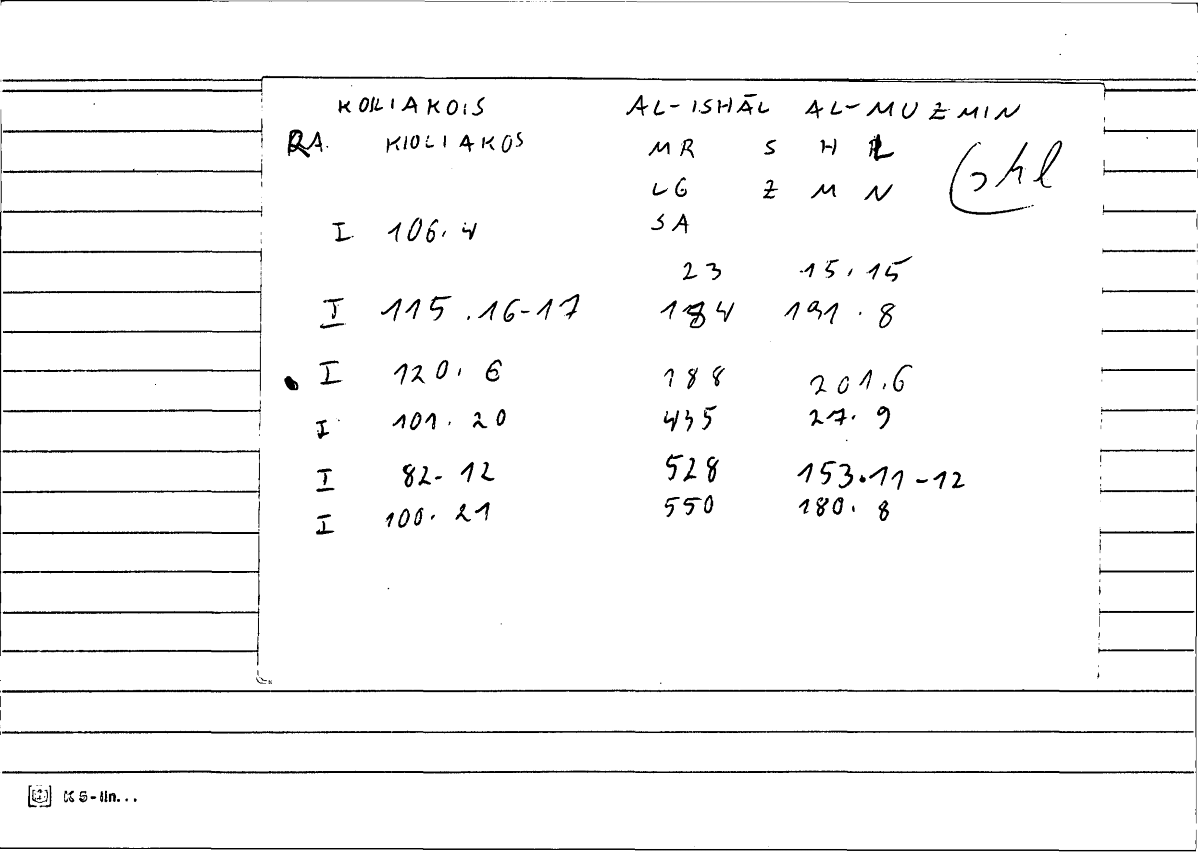 KOILIAKOIS AL-ISHĀL AL-MUZMIN
RA. KIOLIAKOS MR S H L
LG Z M N Ghl
I 106.4 SA
23 15.15
I 115.16-17 184 191.8
I 120.6 188 201.6
I 101.20 435 27.9
I 82-12 528 153.11-12
I 100.21 550 180.8
K5-lin...